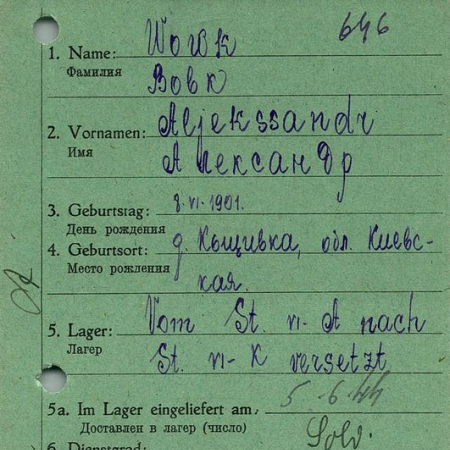 646
1. Name: Wowk
Фамилия Вовк
2. Vornamen: Aljekssandr
Имя Александр
3. Geburtstag: 8.VI.1901.
День рождения
4. Geburtsort: д. Кыщивка, обл. Киевс-
Место рождения кая.
5. Lager: Vom St. VI-A nach
Лагер St. VI-K versetzt
5a. Im Lager eingeliefert am: 5.6.44
Доставлен в лагер (число)
Sold.
6. Dienstgrad: